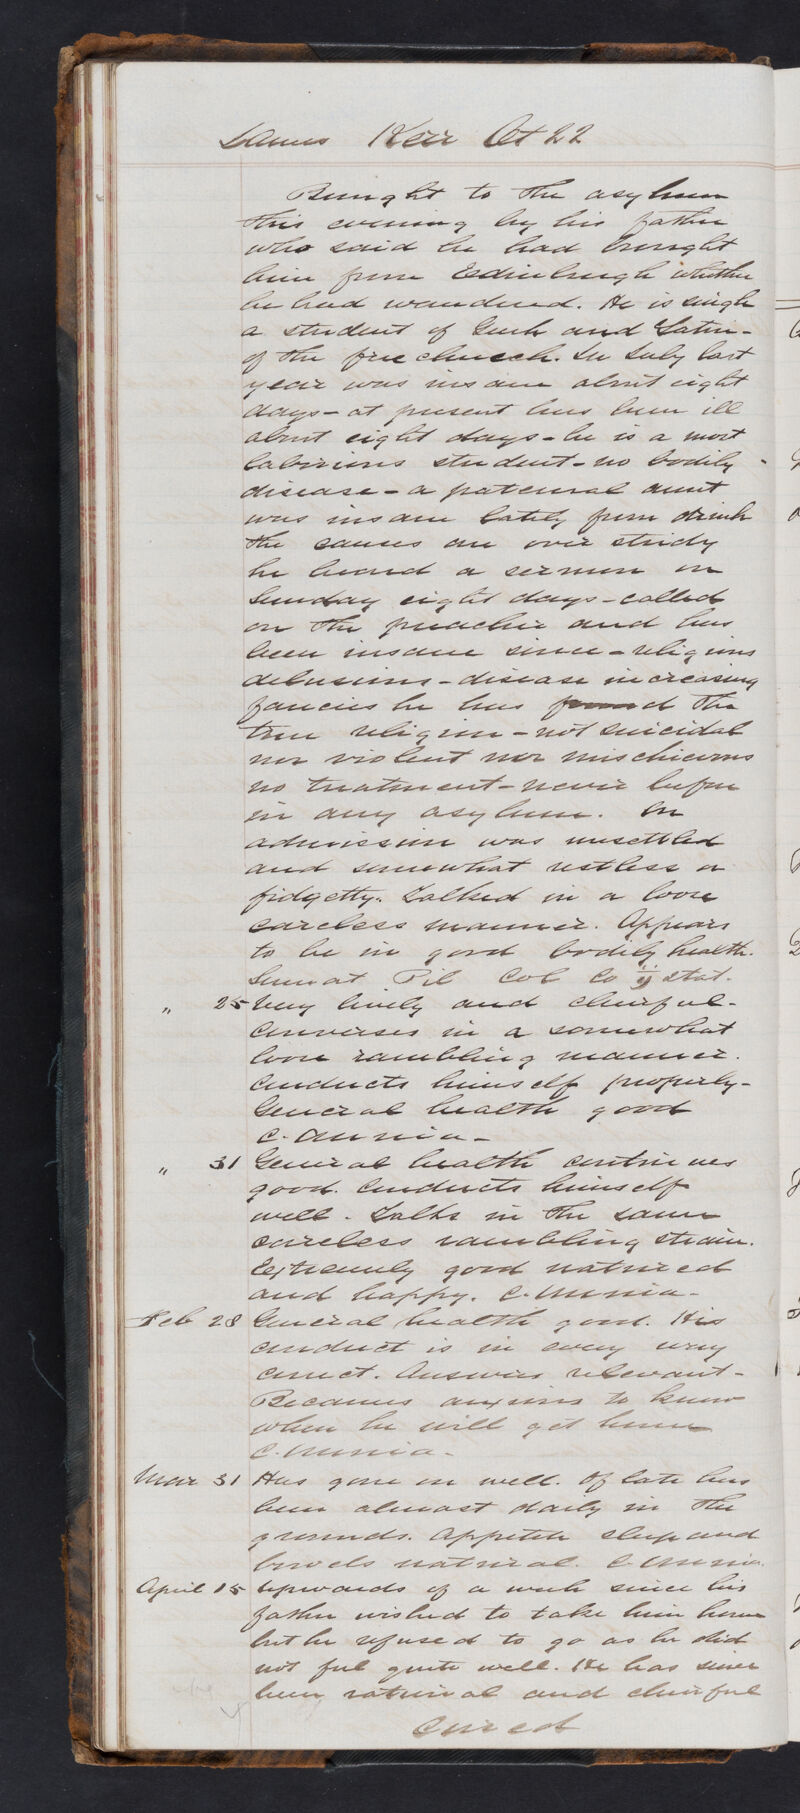 James Keir Æt 22
Brought to the asylum
this evening by his father
who said he had brought
him from Edinburgh whither
he had wandered. He is single
a student of Greek and Latin -
of the free church. In July last
year was insane about eight
days - at present has been ill
about eight days - he is a most
laborious student - no bodily
disease - a paternal aunt
was insane lately from drink
the causes are over study
he heard a sermon on
Sunday eight days - called
on the preacher and has
been insane since - religious
delusions - disease increasing
fancies he has found the
true religion - not suicidal
nor violent nor mischievous
no treatment - never before
in any asylum. On
admission was unsettled
and somewhat restless or
fidgetty. Talked in a loose
careless manner. Appears
to be in good bodily health.
Sumat Pil Col Co ij stat.
" 25 Very lively and cheerful -
Converses in a somewhat
loose rambling manner.
Conducts himself properly -
General health good
C. Omnia -
" 31 General health continues
good. Conducts himself
well. Talks in the same
careless rambling strain.
Extremely good natured
and happy. C. Omnia -
Feb 28 General health good. His
conduct is in every way
correct. Answers relevant -
Becomes anxious to know
when he will get home
C. Omnia -
Mar 31 Has gone on well. Of late has
been almost daily in the
grounds. Appetite sleep and
bowels natural. C. Omnia.
April 15 Upwards of a week since his
father wished to take him home
but he refused to go as he did
not feel quite well. He has since
been rational and cheerful
Cured